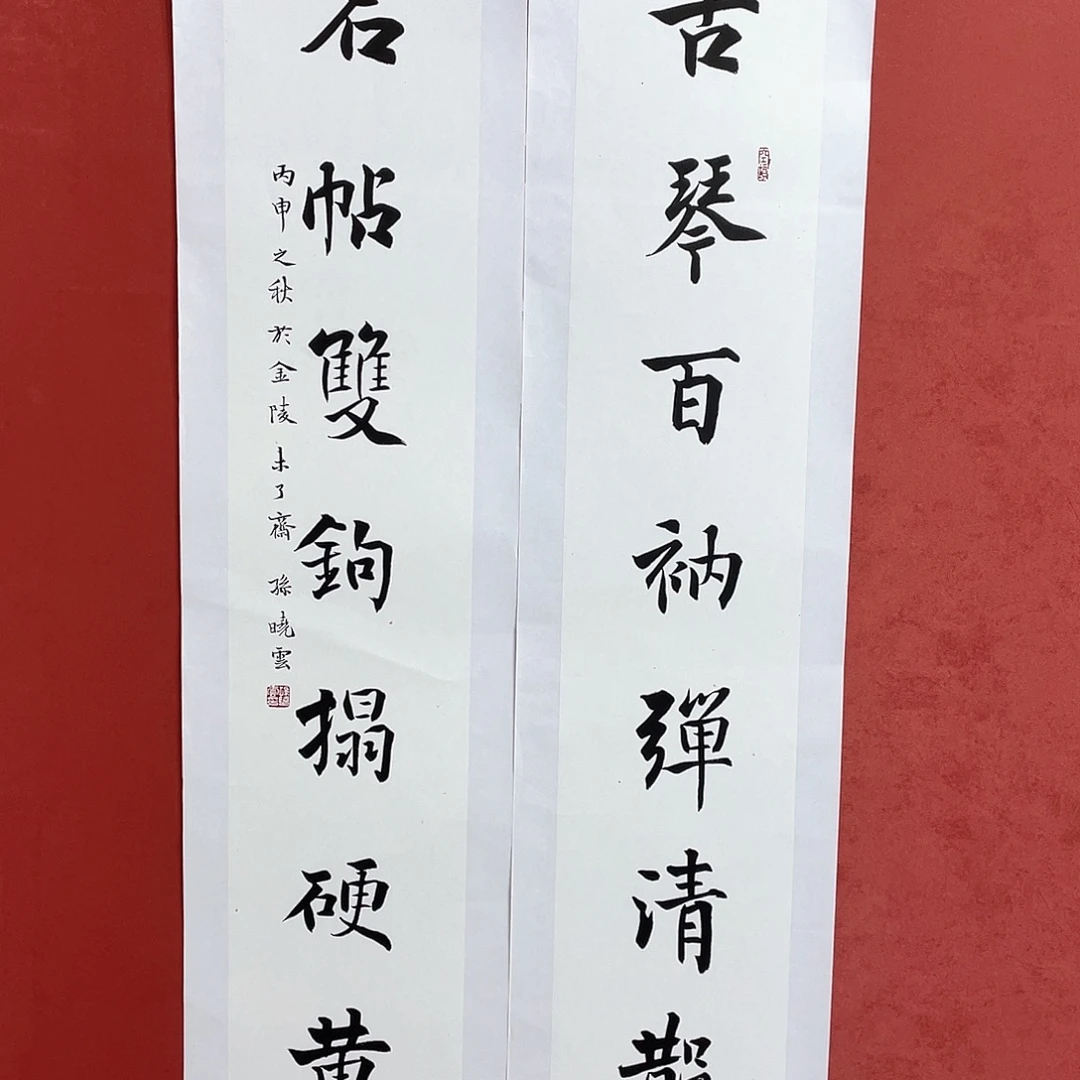 古琴百衲彈清散
名帖雙鉤搨硬黄
丙申之秋於金陵未了齋 孫曉雲